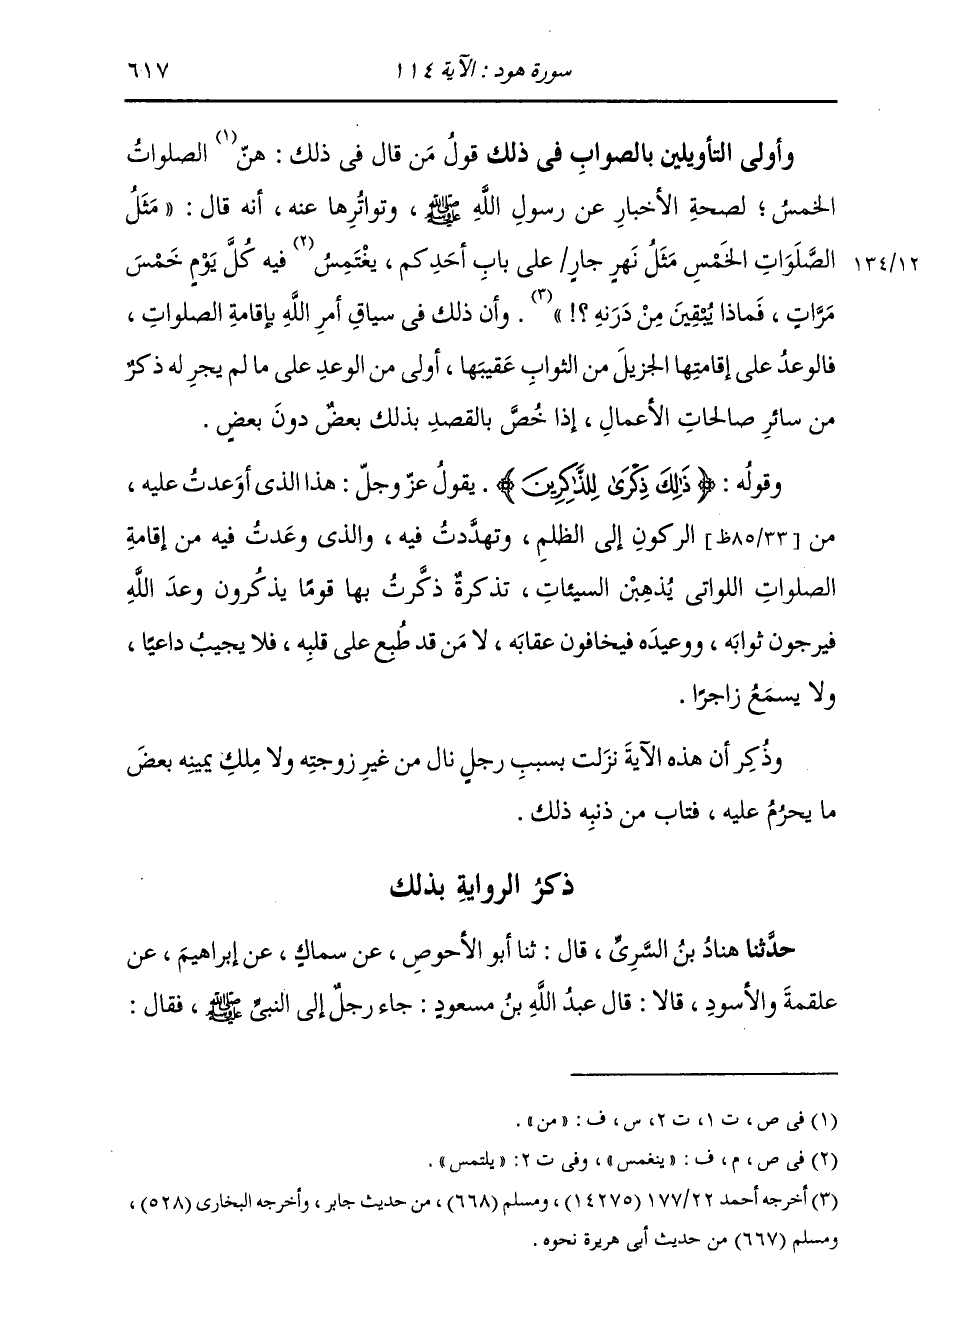 سورة هود : الآية ١١٤ ٦١٧
وأولى التأويلين بالصوابِ فى ذلك قولُ مَن قال فى ذلك : هنّ(١) الصلواتُ
الخمسُ ؛ لصحةِ الأخبارِ عن رسولِ اللَّهِ ﷺ ، وتواتُرِها عنه ، أنه قال : « مَثَلُ
الصَّلَوَاتِ الخَمْسِ مَثَلُ نَهرٍ جارٍ/ على بابِ أحَدِكم ، يغْتَمِسُ(٢) فيه كُلَّ يَوْمٍ خَمْسَ ١٣٤/١٢
مَرَّاتٍ ، فَماذا يُبْقِينَ مِنْ دَرَنهِ ؟! »(٣) . وأن ذلك فى سياقِ أمرِ اللَّهِ بإقامةِ الصلواتِ ،
فالوعدُ على إقامتِها الجزيلَ من الثوابِ عَقيبَها ، أولى من الوعدِ على ما لم يجرِ له ذكرٌ
من سائرِ صالحاتِ الأعمالِ ، إذا خُصَّ بالقصدِ بذلك بعضٌ دونَ بعضٍ .
وقولُه : ﴿ ذَٰلِكَ ذِكْرَىٰ لِلذَّٰكِرِينَ ﴾ . يقولُ عزّ وجلّ : هذا الذى أوَعدتُ عليه ،
من [٨٥/٣٣ظ] الركونِ إلى الظلمِ ، وتهدَّدتُ فيه ، والذى وعَدتُ فيه من إقامةِ
الصلواتِ اللواتى يُذهِبْن السيئاتِ ، تذكرةٌ ذكَّرتُ بها قومًا يذكُرون وعدَ اللَّهِ
فيرجون ثوابَه ، ووعيدَه فيخافون عقابَه ، لا مَن قد طُبِع على قلبِه ، فلا يجيبُ داعيًا ،
ولا يسمَعُ زاجرًا .
وذُكِر أن هذه الآيةَ نزَلت بسببِ رجلٍ نال من غيرِ زوجتِه ولا مِلكِ يمينِه بعضَ
ما يحرُمُ عليه ، فتاب من ذنبِه ذلك .
ذكرُ الروايةِ بذلك
حدَّثنا هنادُ بنُ السَّرِىِّ ، قال : ثنا أبو الأحوصِ ، عن سماكٍ ، عن إبراهيمَ ، عن
علقمةَ والأسودِ ، قالا : قال عبدُ اللَّهِ بنُ مسعودٍ : جاء رجلٌ إلى النبىِّ ﷺ ، فقال :
(١) فى ص ، ت ١ ، ت ٢ ، س ، ف : « من » .
(٢) فى ص ، م ، ف : « ينغمس » ، وفى ت ٢ : « يلتمس » .
(٣) أخرجه أحمد ١٧٧/٢٢ (١٤٢٧٥) ، ومسلم (٦٦٨) ، من حديث جابر ، وأخرجه البخارى (٥٢٨) ،
ومسلم (٦٦٧) من حديث أبى هريرة نحوه .